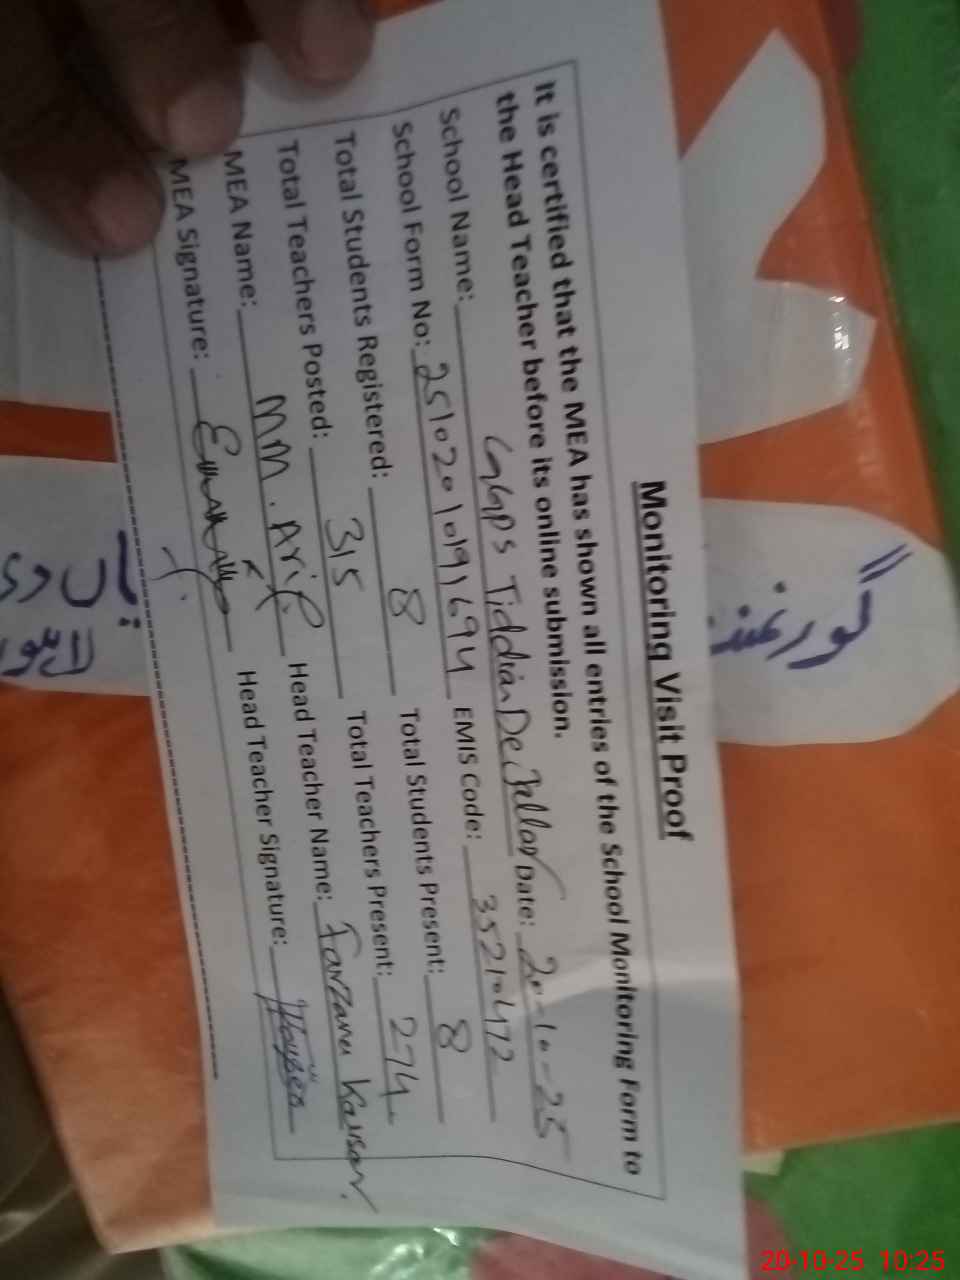 Monitoring Visit Proof
It is certified that the MEA has shown all entries of the School Monitoring Form to
the Head Teacher before its online submission.
School Name: GGPS Tiddian De Jallar Date: 20-10-25
School Form No: 25102010191694 EMIS Code: 35210472
Total Students Registered: 8 Total Students Present: 8
Total Teachers Posted: 315 Total Teachers Present: 274
MEA Name: MM. Arif Head Teacher Name: Farzana Kausar.
MEA Signature: Head Teacher Signature:
گورنمنٹ
20-10-25 10:25